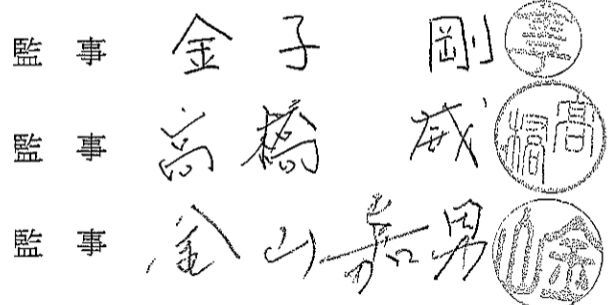 監事 金子 剛
監事 高橋 威
監事 金山嘉男